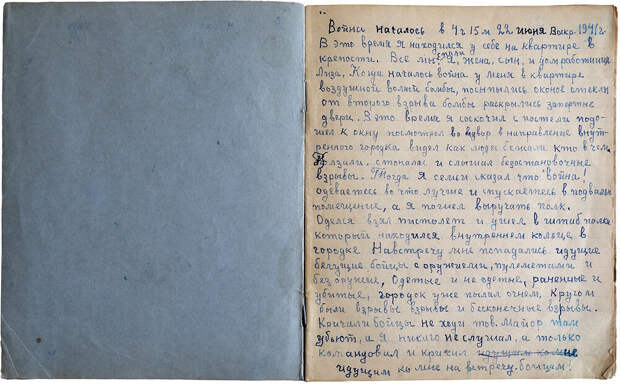 Война началось в 4 ч 15 м 22 июня Воскр. 1941 г.
В это время я находился у себя на квартире в
крепости. Все мы спали я, жена, сын, и домработница
Лиза, Когда началось война у меня в квартире
воздушной волной бомбы, посыпались оконое стекли
от второго взрыва бомбы раскрылись запертые
двери. В это время я соскочил с постели подо-
шел к окну посмотрел во в направление внут-
ренного городка видел как люды бежали кто в чем
стоналов и слышал безостановочные
взрывы. Тогда я семьи сказал что "война!
одеваетесь во что лучше и спускаетесь в подвальн
помещение, а я пошел выручать полк.
Оделся взял пистолет и ушел в штаб полка
который находился внутреннем колеце в
городке Навстречу мне попадались идущие
бегущие бойцы с оружием, пулеметами и
без оружие, Одетые и не одетые, раненные и
убитые, городок уже пылал огнем, Кругом
были взрывы взрывы и бесконечные взрывы.
Кричали бойцы не ходи тов. Майор там
убьют, а я никого не слушал, а только
командовал и кричил идущим ко мне
идущим ко мне на встречу бойцам!